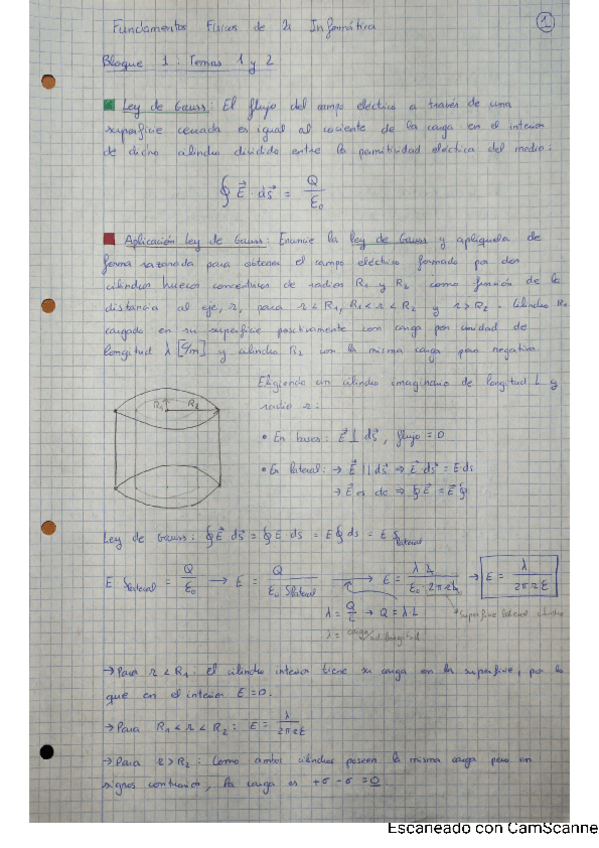 Fundamentos Físicos de la Informática
1
Bloque 1: Temas 1 y 2
Ley de Gauss: El flujo del campo eléctrico a través de una
superficie cerrada es igual al cociente de la carga en el interior
de dicho cilindro dividido entre la permitividad eléctrica del medio:
∮ E⃗ · ds⃗ = Q / ε₀
Aplicación Ley de Gauss: Enuncie la Ley de Gauss y aplíquela de
forma razonada para obtener el campo eléctrico formado por dos
cilindros huecos concéntricos de radios R₁ y R₂ como función de la
distancia al eje, r, para r < R₁, R₁ < r < R₂ y r > R₂. Cilindro R₁
cargado en su superficie positivamente con carga por unidad de
longitud λ [C/m] y cilindro R₂ con la misma carga pero negativa
R₁ R₂
Eligiendo un cilindro imaginario de longitud L y
radio r:
• En bases: E⃗ ⊥ ds⃗, flujo = 0
• En lateral: → E⃗ || ds⃗ ⇒ E⃗ · ds⃗ = E · ds
→ E⃗ es cte ⇒ ∮ E⃗ = E⃗ ∮
Ley de Gauss: ∮ E⃗ ds⃗ = ∮ E · ds = E ∮ ds = E S lateral
E S lateral = Q / ε₀ → E = Q / (ε₀ S lateral) → E = λ L / (ε₀ · 2π r L) → E = λ / (2π r ε)
λ = Q / L → Q = λ · L
Superficie lateral cilindro
λ = carga / ud longitud
→ Para r < R₁: el cilindro interior tiene su carga en la superficie, por lo
que en el interior E = 0.
→ Para R₁ < r < R₂: E = λ / (2π r ε)
→ Para r > R₂: Como ambos cilindros poseen la misma carga pero con
signos contrarios, la carga es +σ − σ = 0
Escaneado con CamScanne